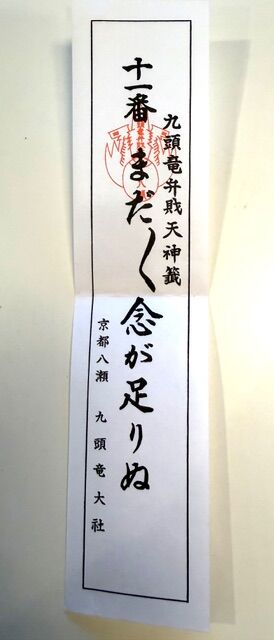 九頭竜弁戝天神籤
十一番 まだ〳〵念が足りぬ
京都八瀬 九頭竜大社